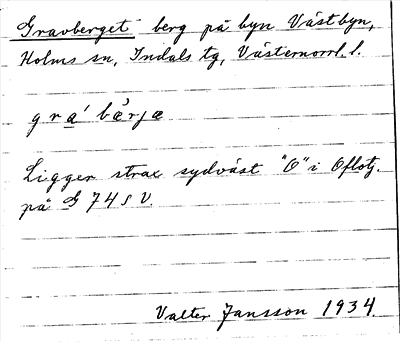 Gravberget berg på byn Västbyn,
Holms sn, Indals tg, Västernorrl. l.
gra' bærjæ
Ligger strax sydväst "O" i Oflotj.
på G 74 S V.
Valter Jansson 1934